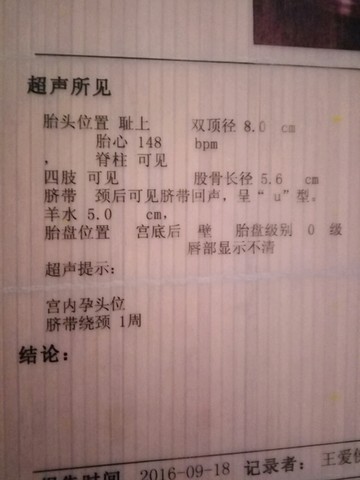 超声所见
胎头位置 耻上 双顶径 8.0 cm
胎心 148 bpm
, 脊柱 可见
四肢 可见 股骨长径 5.6 cm
脐带 颈后可见脐带回声，呈“ u”型。
羊水 5.0 cm,
胎盘位置 宫底后 壁 胎盘级别 0 级
唇部显示不清
超声提示：
宫内孕头位
脐带绕颈 1周
结论：
报告时间 2016-09-18 记录者： 王爱